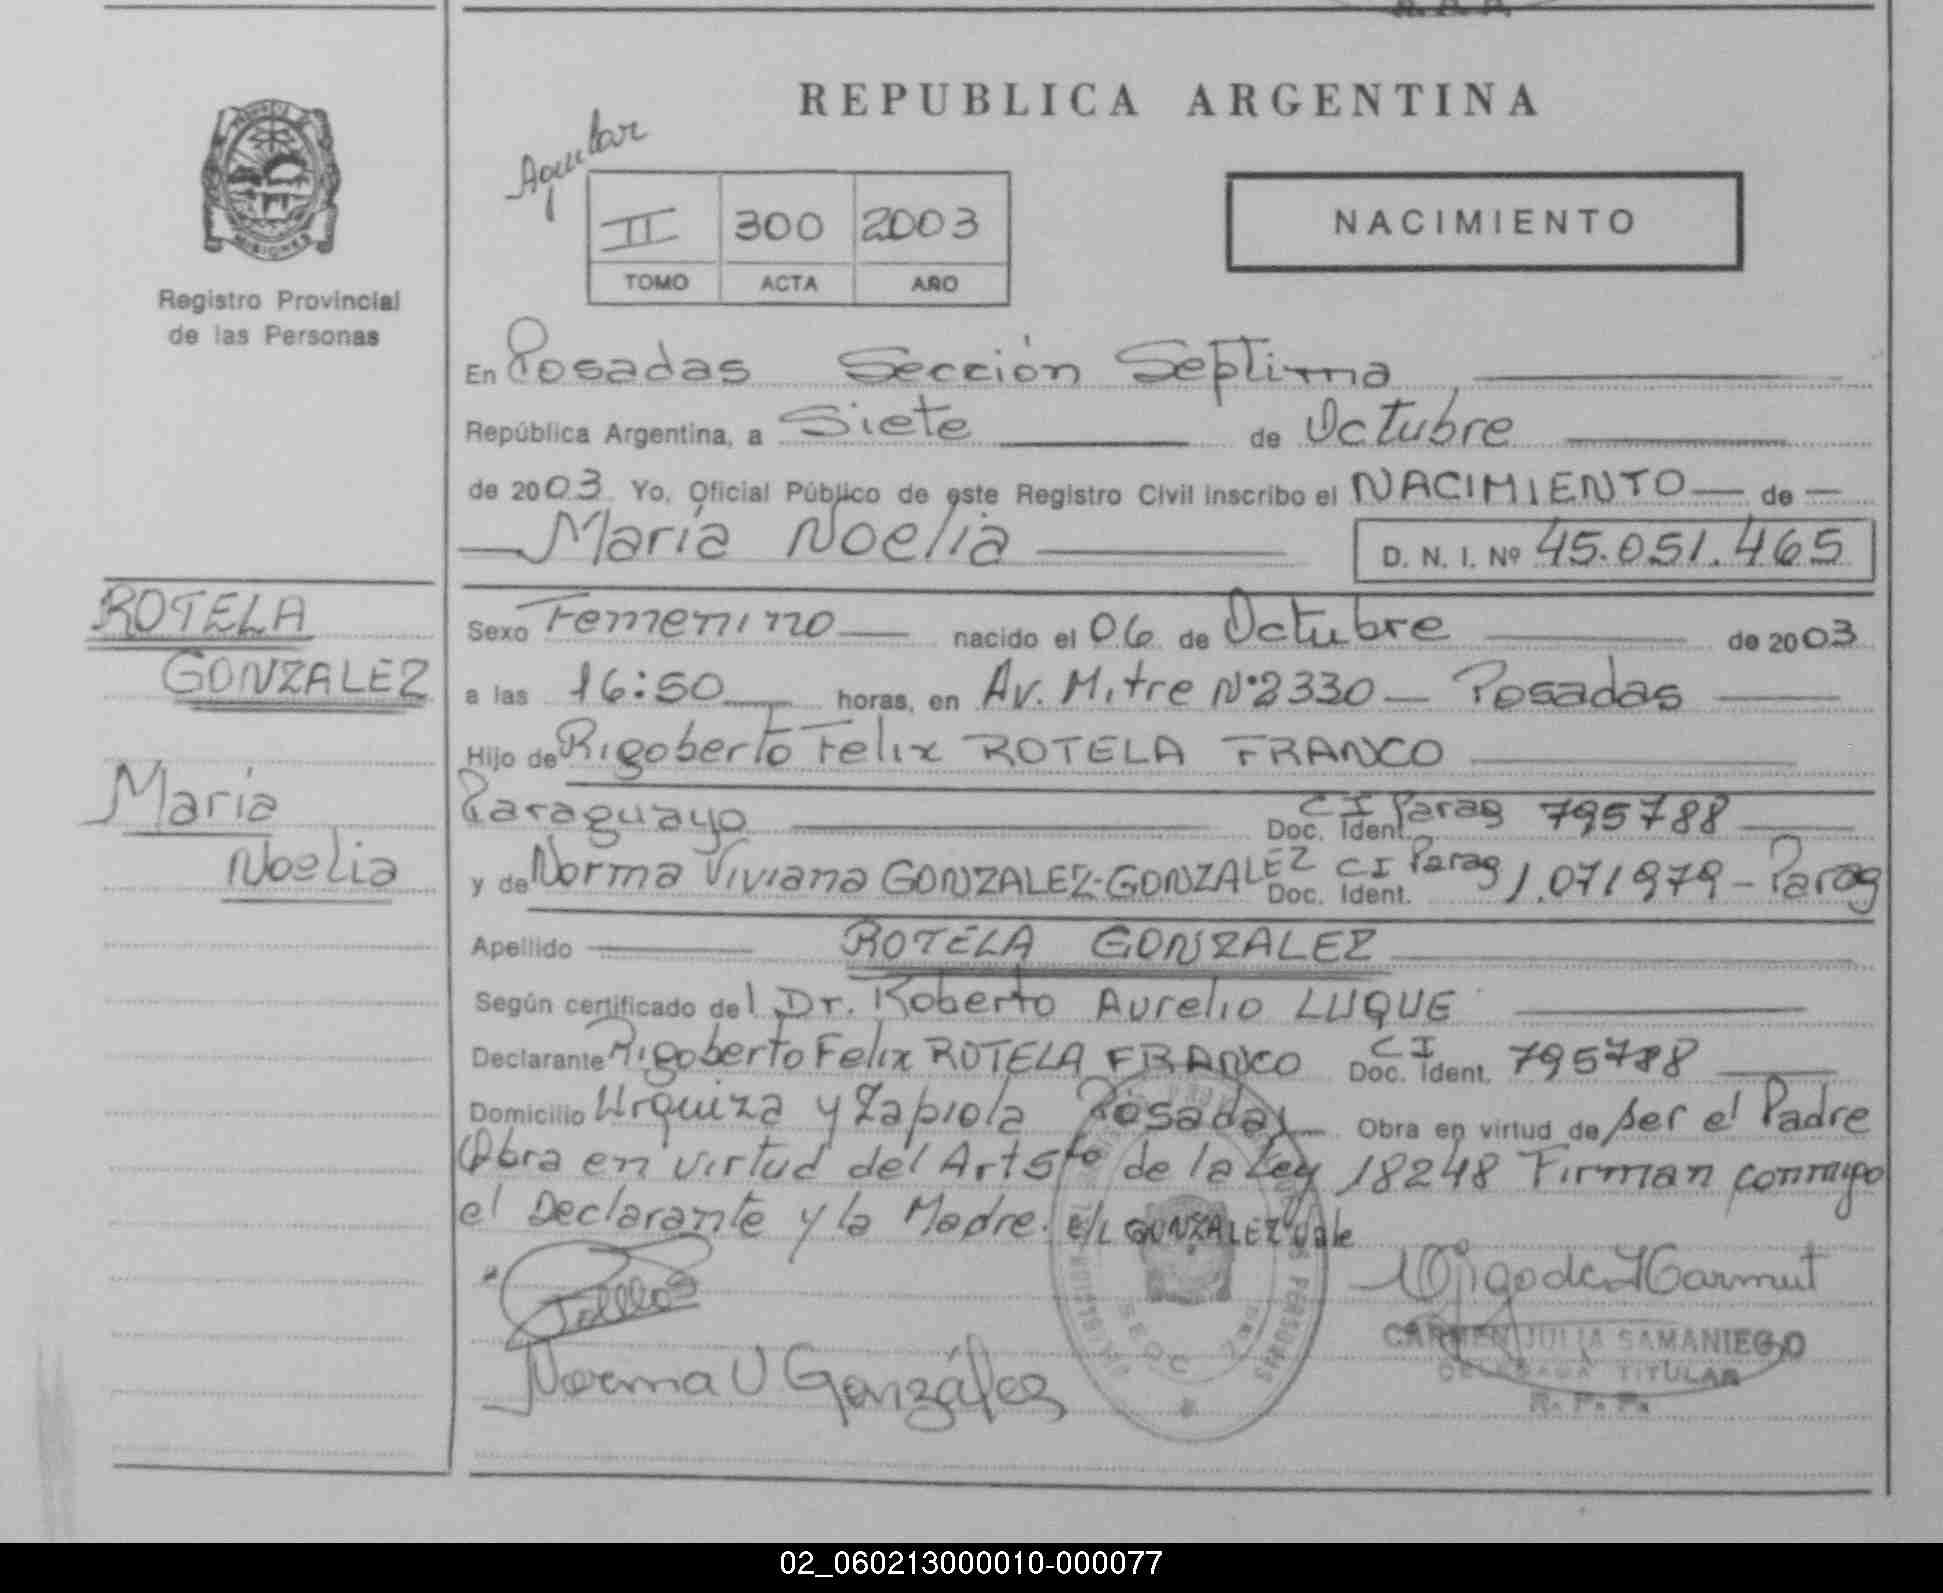 REPUBLICA ARGENTINA
Aguilar
II 300 2003
TOMO ACTA AÑO
NACIMIENTO
MISIONES
Registro Provincial
de las Personas
En Posadas Sección Septima
República Argentina, a Siete de Octubre
de 2003 Yo, Oficial Público de este Registro Civil inscribo el NACIMIENTO de
María Noelia
D. N. I. Nº 45.051.465
ROTELA
GONZALEZ
María
Noelia
Sexo Femenino nacido el 06 de Octubre de 2003
a las 16:50 horas, en Av. Mitre N°2330 - Posadas
Hijo de Rigoberto Felix ROTELA FRANCO
Paraguayo CI Parag Doc. Ident. 795788
y de Norma Viviana GONZALEZ-GONZALEZ CI Parag Doc. Ident. 1.071979 - Parag
Apellido ROTELA GONZALEZ
Según certificado del Dr. Roberto Aurelio LUQUE
Declarante Rigoberto Felix ROTELA FRANCO CI Doc. Ident. 795788
Domicilio Urquiza y Zapiola Posadas Obra en virtud de ser el Padre
Obra en virtud del Art 5to de la Ley 18248 Firman conmigo
el Declarante y la Madre. e/L GONZALEZ Vale
Norma V González
CARMEN JULIA SAMANIEGO
DELEGADA TITULAR
R. P. P.
02_060213000010-000077